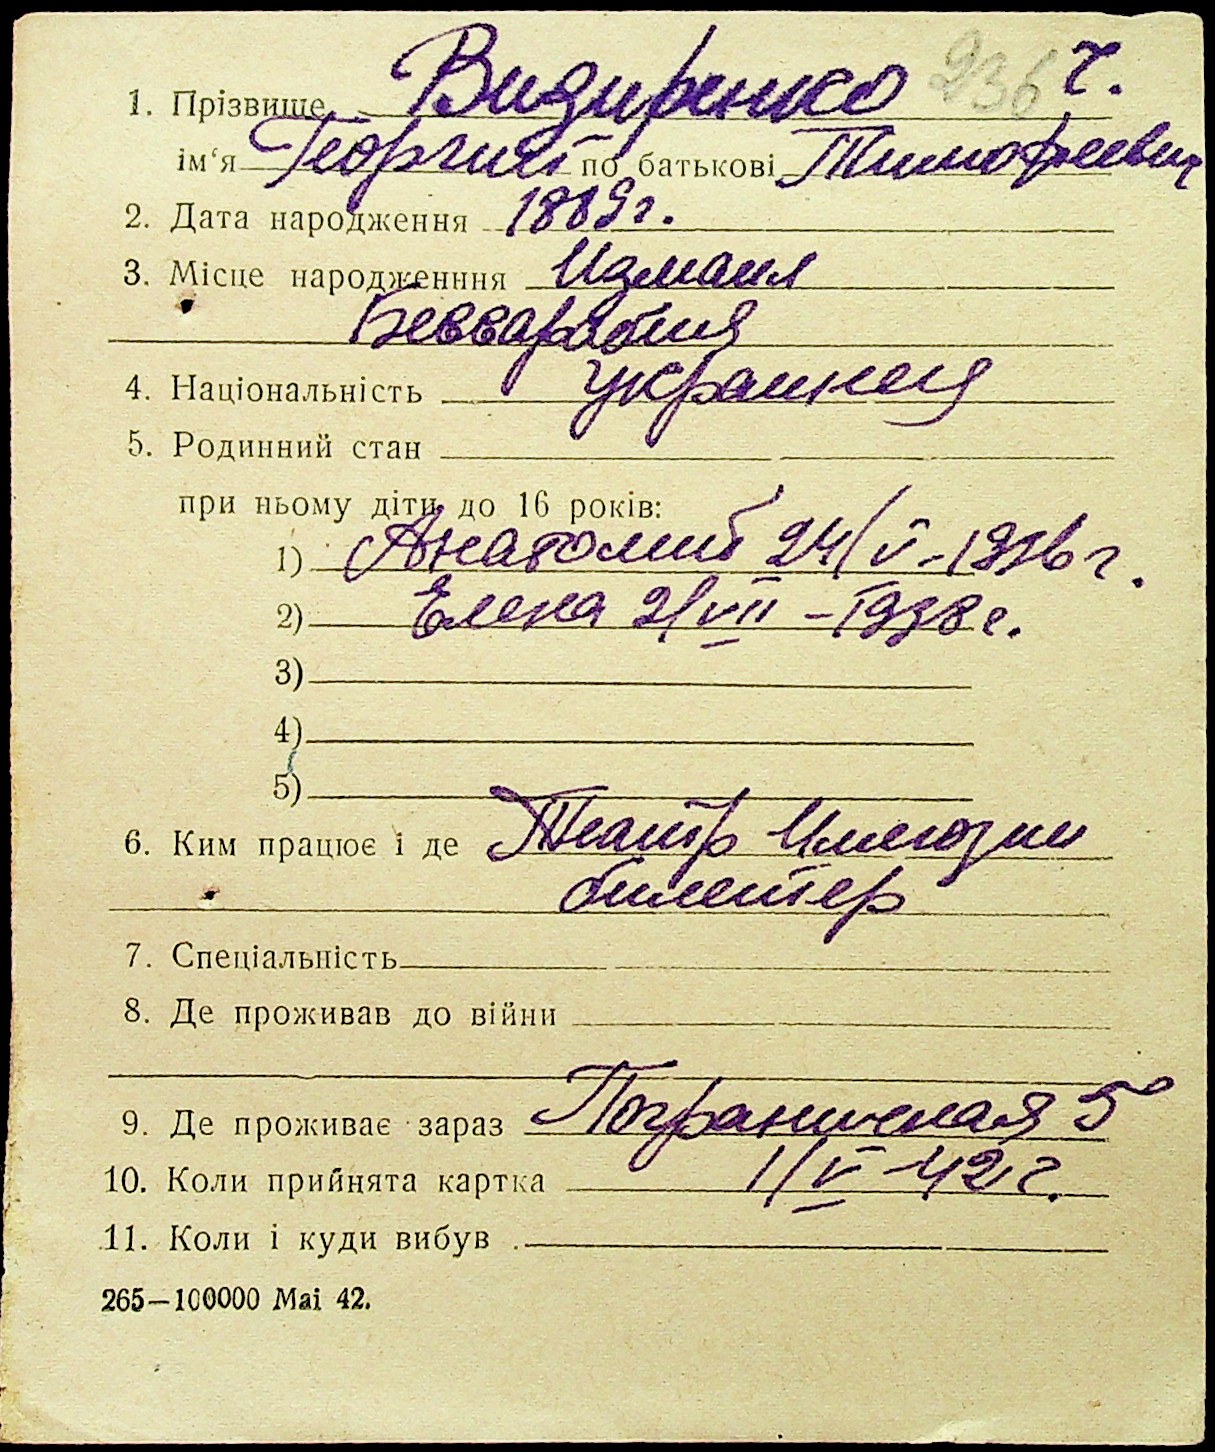 1. Прізвище Видиренко 236 г.
ім'я Георгий по батькові Тимофеевич
2. Дата народження 1889 г.
3. Місце народженння Измаил
Бессарабия
4. Національність украинец
5. Родинний стан
при ньому діти до 16 років:
1) Анатолий 24/V - 1936 г.
2) Елена 2/VII - 1938 г.
3)
4)
5)
6. Ким працює і де Театр Иллюзии
билетер
7. Спеціальність
8. Де проживав до війни
9. Де проживає зараз Пограничная 5
10. Коли прийнята картка 1/V - 42 г.
11. Коли і куди вибув
265—100000 Mai 42.